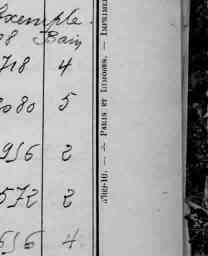 exemple.
08 Bain
718 4
2080 5
956 2
572 2
656 4
PARIS ET LIMOGES. — IMPRIME